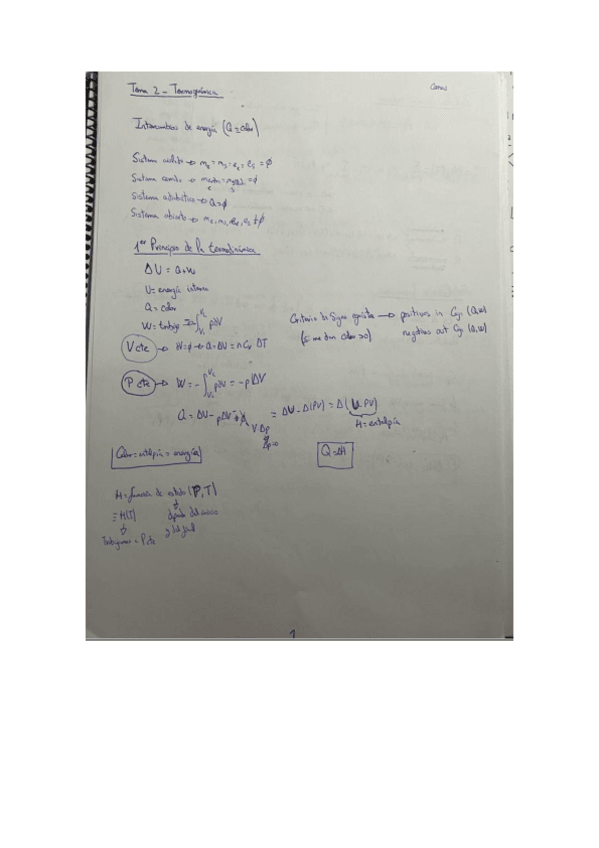 Tema 2 - Termoquímica
Intercambios de energía (Q = calor)
Sistema aislado → me = ms = ee = es = ø
Sistema cerrado → = ø
Sistema adiabático → Q = ø
Sistema abierto → me, ms, ee, es ≠ ø
1er Principio de la termodinámica
ΔU = Q + W
U = energía interna
Q = calor
W = trabajo = -∫ p dV
Criterio de signo → positivos in (Q, W)
(si me dan calor > 0) negativos out (Q, W)
V cte → W = ø → Q = ΔU = n Cv ΔT
P cte → W = -∫ p dV = -pΔV
Q = ΔU - pΔV
VΔp
Δp=0
= ΔU - Δ(PV) = Δ(U PV)
H = entalpía
Calor = entalpia = energía
Q = ΔH
H = función de estado (P, T)
= H(T)
y del final
P cte
1